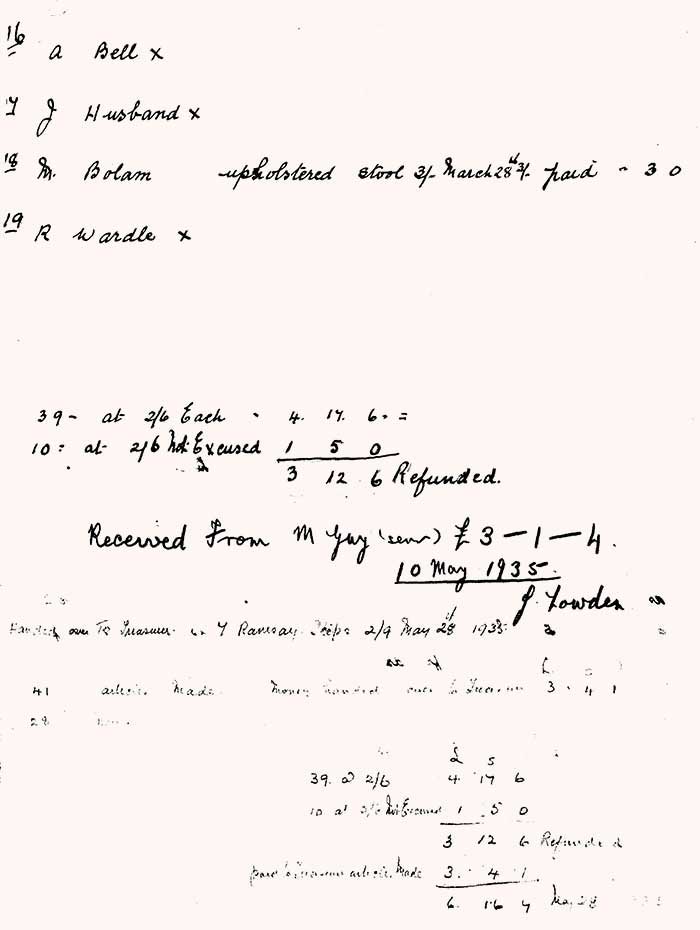 16 A Bell x
J Husband x
18 M. Bolam upholstered stool 3/- March 28th 3/- paid - 3 0
19 R Wardle x
39 - at 2/6 Each - 4. 17. 6. =
10 = at 2/6 Not Excused 1 5 0
3 12 6 Refunded.
Received From M Guy (senr) £3-1-4.
10 May 1935.
J. Lowden
Handed over To Treasurer Ramsay 2/9 May 28th 1935
41 articles Made Money handed over to Treasurer 3 - 4 1
28
£ s
39. @ 2/6 4 17 6
10 at 2/6 Not Excused 1 5 0
3 12 6 Refunded
paid to Treasurer articles Made 3. 4 1
6. 16 7 May 28